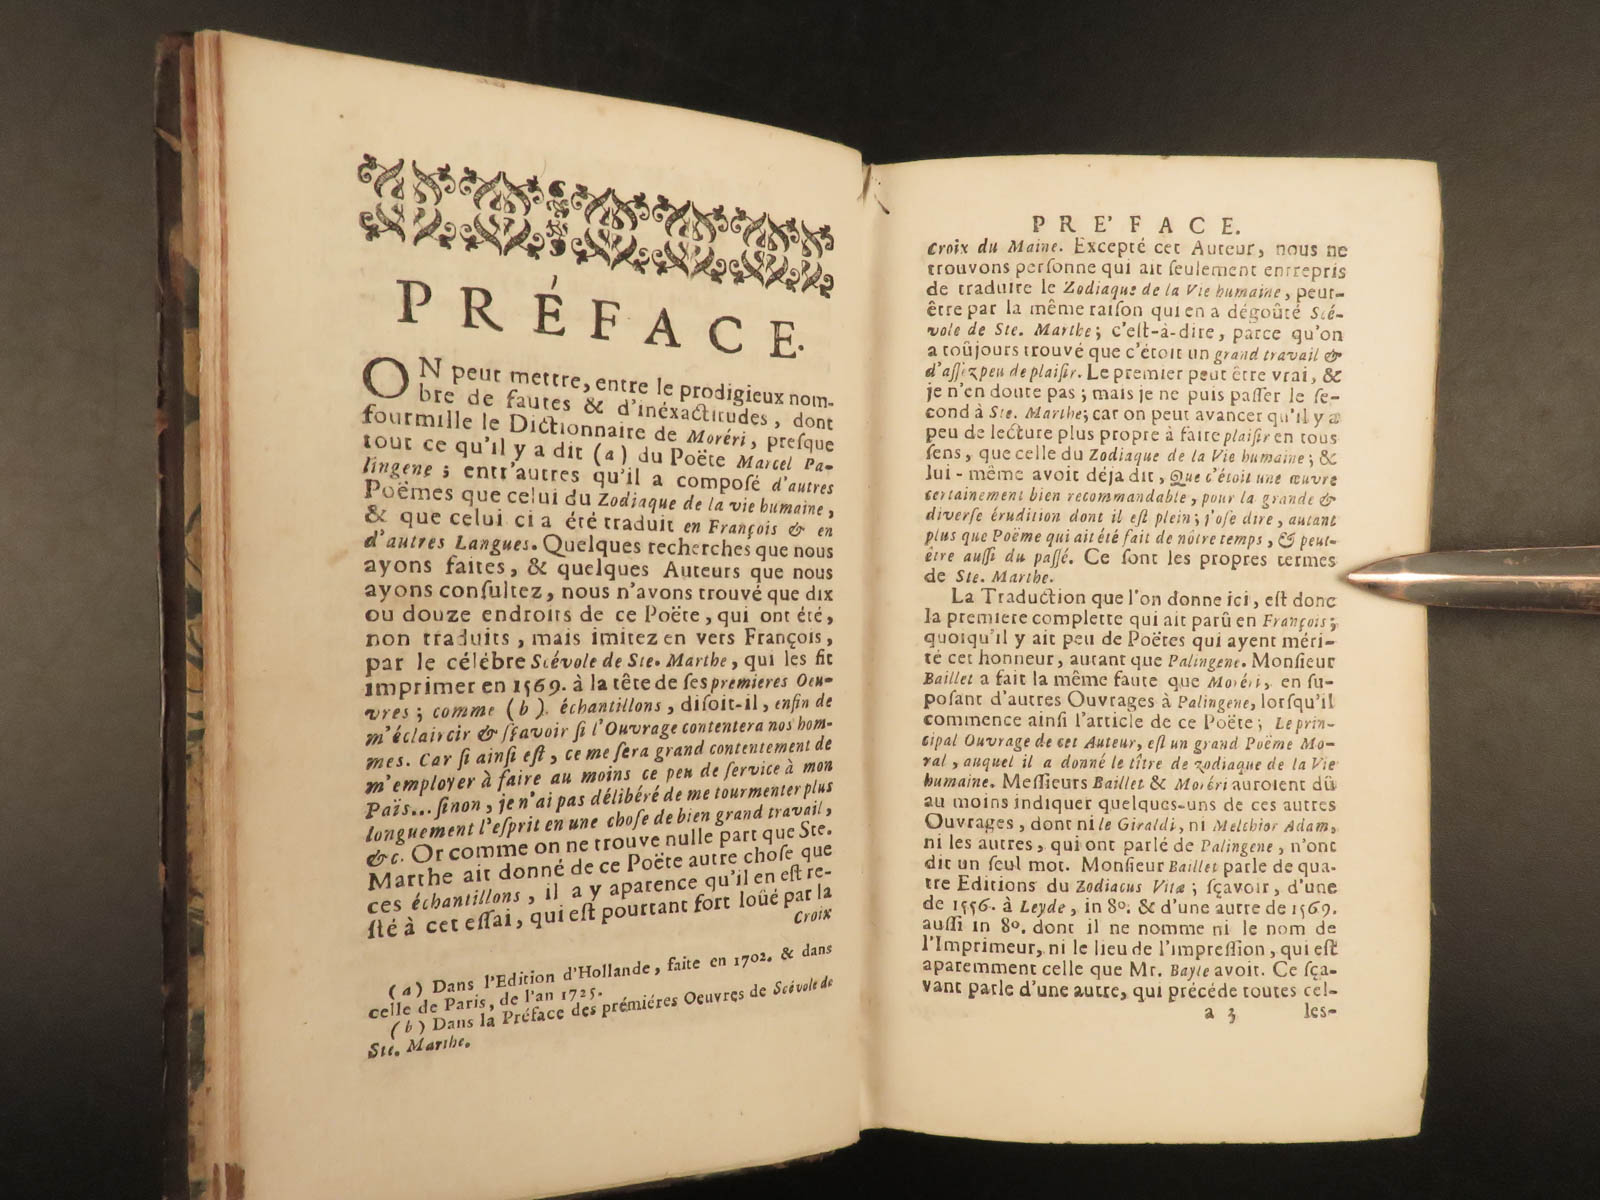 PRÉFACE.
ON peut mettre, entre le prodigieux nom-
bre de fautes & d'inéxactitudes, dont
fourmille le Dictionnaire de Moréri, presque
tout ce qu'il y a dit (a) du Poëte Marcel Pa-
lingene; entr'autres qu'il a composé d'autres
Poëmes que celui du Zodiaque de la vie humaine,
& que celui ci a été traduit en François & en
d'autres Langues. Quelques recherches que nous
ayons faites, & quelques Auteurs que nous
ayons consultez, nous n'avons trouvé que dix
ou douze endroits de ce Poëte, qui ont été,
non traduits, mais imitez en vers François,
par le célébre Scévole de Ste. Marthe, qui les fit
imprimer en 1569. à la tête de ses premieres Oeu-
vres; comme (b) échantillons, disoit-il, enfin de
m'éclaircir & sçavoir si l'Ouvrage contentera nos hom-
mes. Car si ainsi est, ce me sera grand contentement de
m'employer à faire au moins ce peu de service à mon
Païs... sinon, je n'ai pas délibéré de me tourmenter plus
longuement l'esprit en une chose de bien grand travail,
&c. Or comme on ne trouve nulle part que Ste.
Marthe ait donné de ce Poëte autre chose que
ces échantillons, il a y aparence qu'il en est re-
sté à cet essai, qui est pourtant fort loüé par la
Croix
(a) Dans l'Edition d'Hollande, faite en 1702. & dans
celle de Paris, de l'an 1725.
(b) Dans la Préface des prémiéres Oeuvres de Scévole de
Ste. Marthe.
PRE'FACE.
Croix du Maine. Excepté cet Auteur, nous ne
trouvons personne qui ait seulement entrepris
de traduire le Zodiaque de la Vie humaine, peut-
être par la même raison qui en a dégoûté Scé-
vole de Ste. Marthe; c'est-à-dire, parce qu'on
a toûjours trouvé que c'étoit un grand travail &
d'assez peu de plaisir. Le premier peut être vrai, &
je n'en doute pas; mais je ne puis passer le se-
cond à Ste. Marthe; car on peut avancer qu'il y a
peu de lecture plus propre à faire plaisir en tous
sens, que celle du Zodiaque de la Vie humaine; &
lui-même avoit déja dit, Que c'étoit une œuvre
certainement bien recommandable, pour la grande &
diverse érudition dont il est plein; j'ose dire, autant
plus que Poëme qui ait été fait de nôtre temps, & peut-
être aussi du passé. Ce sont les propres termes
de Ste. Marthe.
La Traduction que l'on donne ici, est donc
la premiere complette qui ait parû en François;
quoiqu'il y ait peu de Poëtes qui ayent méri-
té cet honneur, autant que Palingene. Monsieur
Baillet a fait la même faute que Moréri, en su-
posant d'autres Ouvrages à Palingene, lorsqu'il
commence ainsi l'article de ce Poëte; Le prin-
cipal Ouvrage de cet Auteur, est un grand Poëme Mo-
ral, auquel il a donné le tître de zodiaque de la Vie
humaine. Messieurs Baillet & Moréri auroient dû
au moins indiquer quelques-uns de ces autres
Ouvrages, dont ni le Giraldi, ni Melchior Adam,
ni les autres, qui ont parlé de Palingene, n'ont
dit un seul mot. Monsieur Baillet parle de qua-
tre Editions du Zodiacus Vitæ; sçavoir, d'une
de 1556. à Leyde, in 8o. & d'une autre de 1569.
aussi in 8o. dont il ne nomme ni le nom de
l'Imprimeur, ni le lieu de l'impression, qui est
aparemment celle que Mr. Bayle avoit. Ce sça-
vant parle d'une autre, qui précéde toutes cel-
a 3 les-